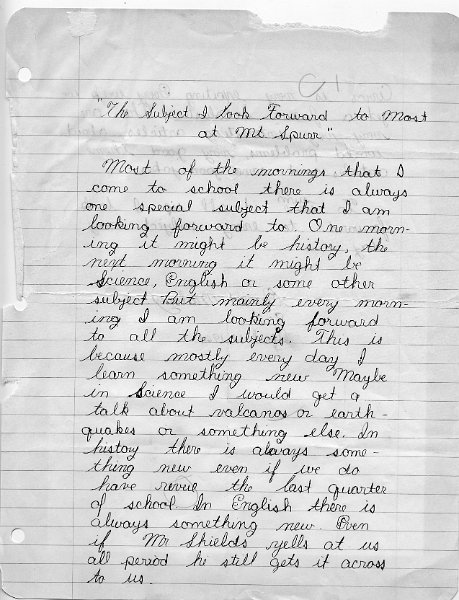 C1
"The Subject I Look Forward to Most
at Mt Spurr"
Most of the mornings that I
come to school there is always
one special subject that I am
looking forward to. One morn-
ing it might be history, the
next morning it might be
Science, English or some other
subject But mainly every morn-
ing I am looking forward
to all the subjects. This is
because mostly every day I
learn something new Maybe
in Science I would get a
talk about valcanos or earth-
quakes or something else. In
history there is always some-
thing new even if we do
have revue the last quarter
of school. In English there is
always something new Even
if Mr Shields yells at us
all period he still gets it across
to us.